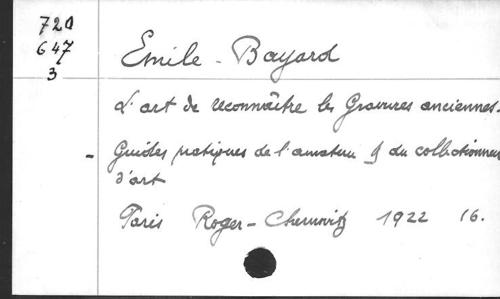 720
647
3
Emile - Bayard
L'art de reconnaître les Gravures anciennes.
- Guides pratiques de l'amateur & du collectionneur
d'art
Paris Roger - Chernoviz 1922 16.